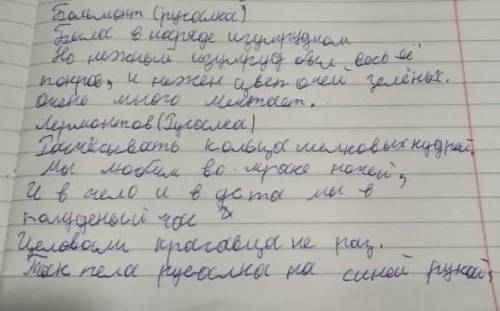 Бальмонт (русалка)
Была в наряде изумрудном
Но нежный изумруд был весь её
покров, и нежен цвет очей зелёных.
очень много мечтает.
Лермонтов (Русалка)
Расчёсывать кольца шелковых кудрей
Мы любим во мраке ночей,
И в чело и в уста мы в
полуденый час
Целовали красавца не раз.
Так пела русалка на синей рукой,